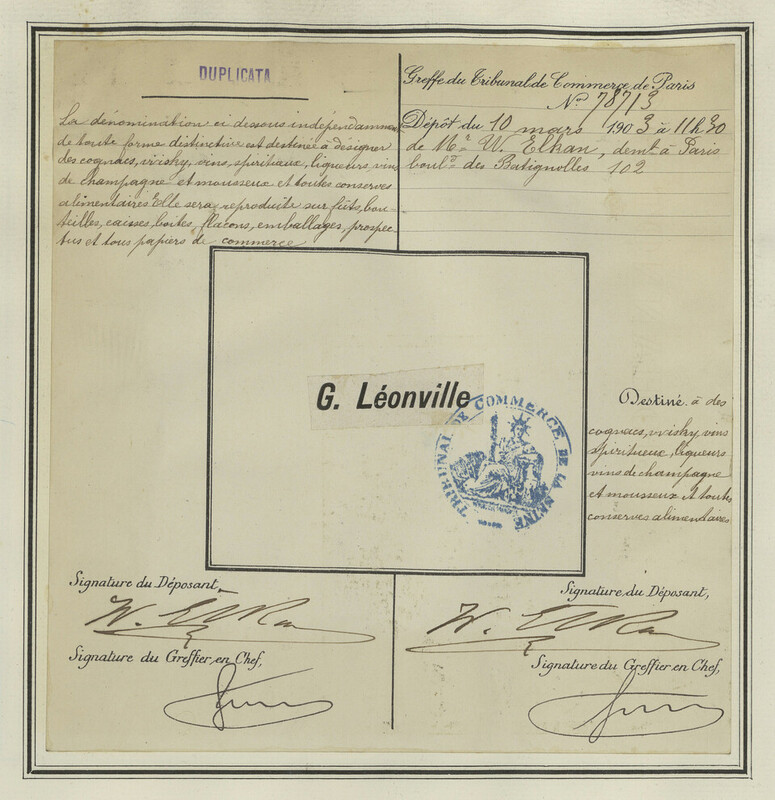 DUPLICATA
La dénomination ci dessous indépendamment
de toute forme distinctive est destinée à désigner
des cognacs, wisky, vins, spiritueux, liqueurs, vins
de champagne et mousseux et toutes conserves
alimentaires. Elle sera reproduite sur fûts, bou-
teilles, caisses, boites, flacons, emballages, prospec-
tus et tous papiers de commerce
Greffe du Tribunal de Commerce de Paris
No 78713
Dépôt du 10 mars 1903 à 11h30
de Mr W. Elkan, demt à Paris
boulд des Batignolles 102
G. Léonville
TRIBUNAL DE COMMERCE DE LA SEINE
Destiné à des
cognacs, wisky, vins
spiritueux, liqueurs
vins de champagne
et mousseux et toutes
conserves alimentaires
Signature du Déposant,
W. Elkan
Signature du Greffier en Chef,
Signature du Déposant,
W. Elkan
Signature du Greffier en Chef,